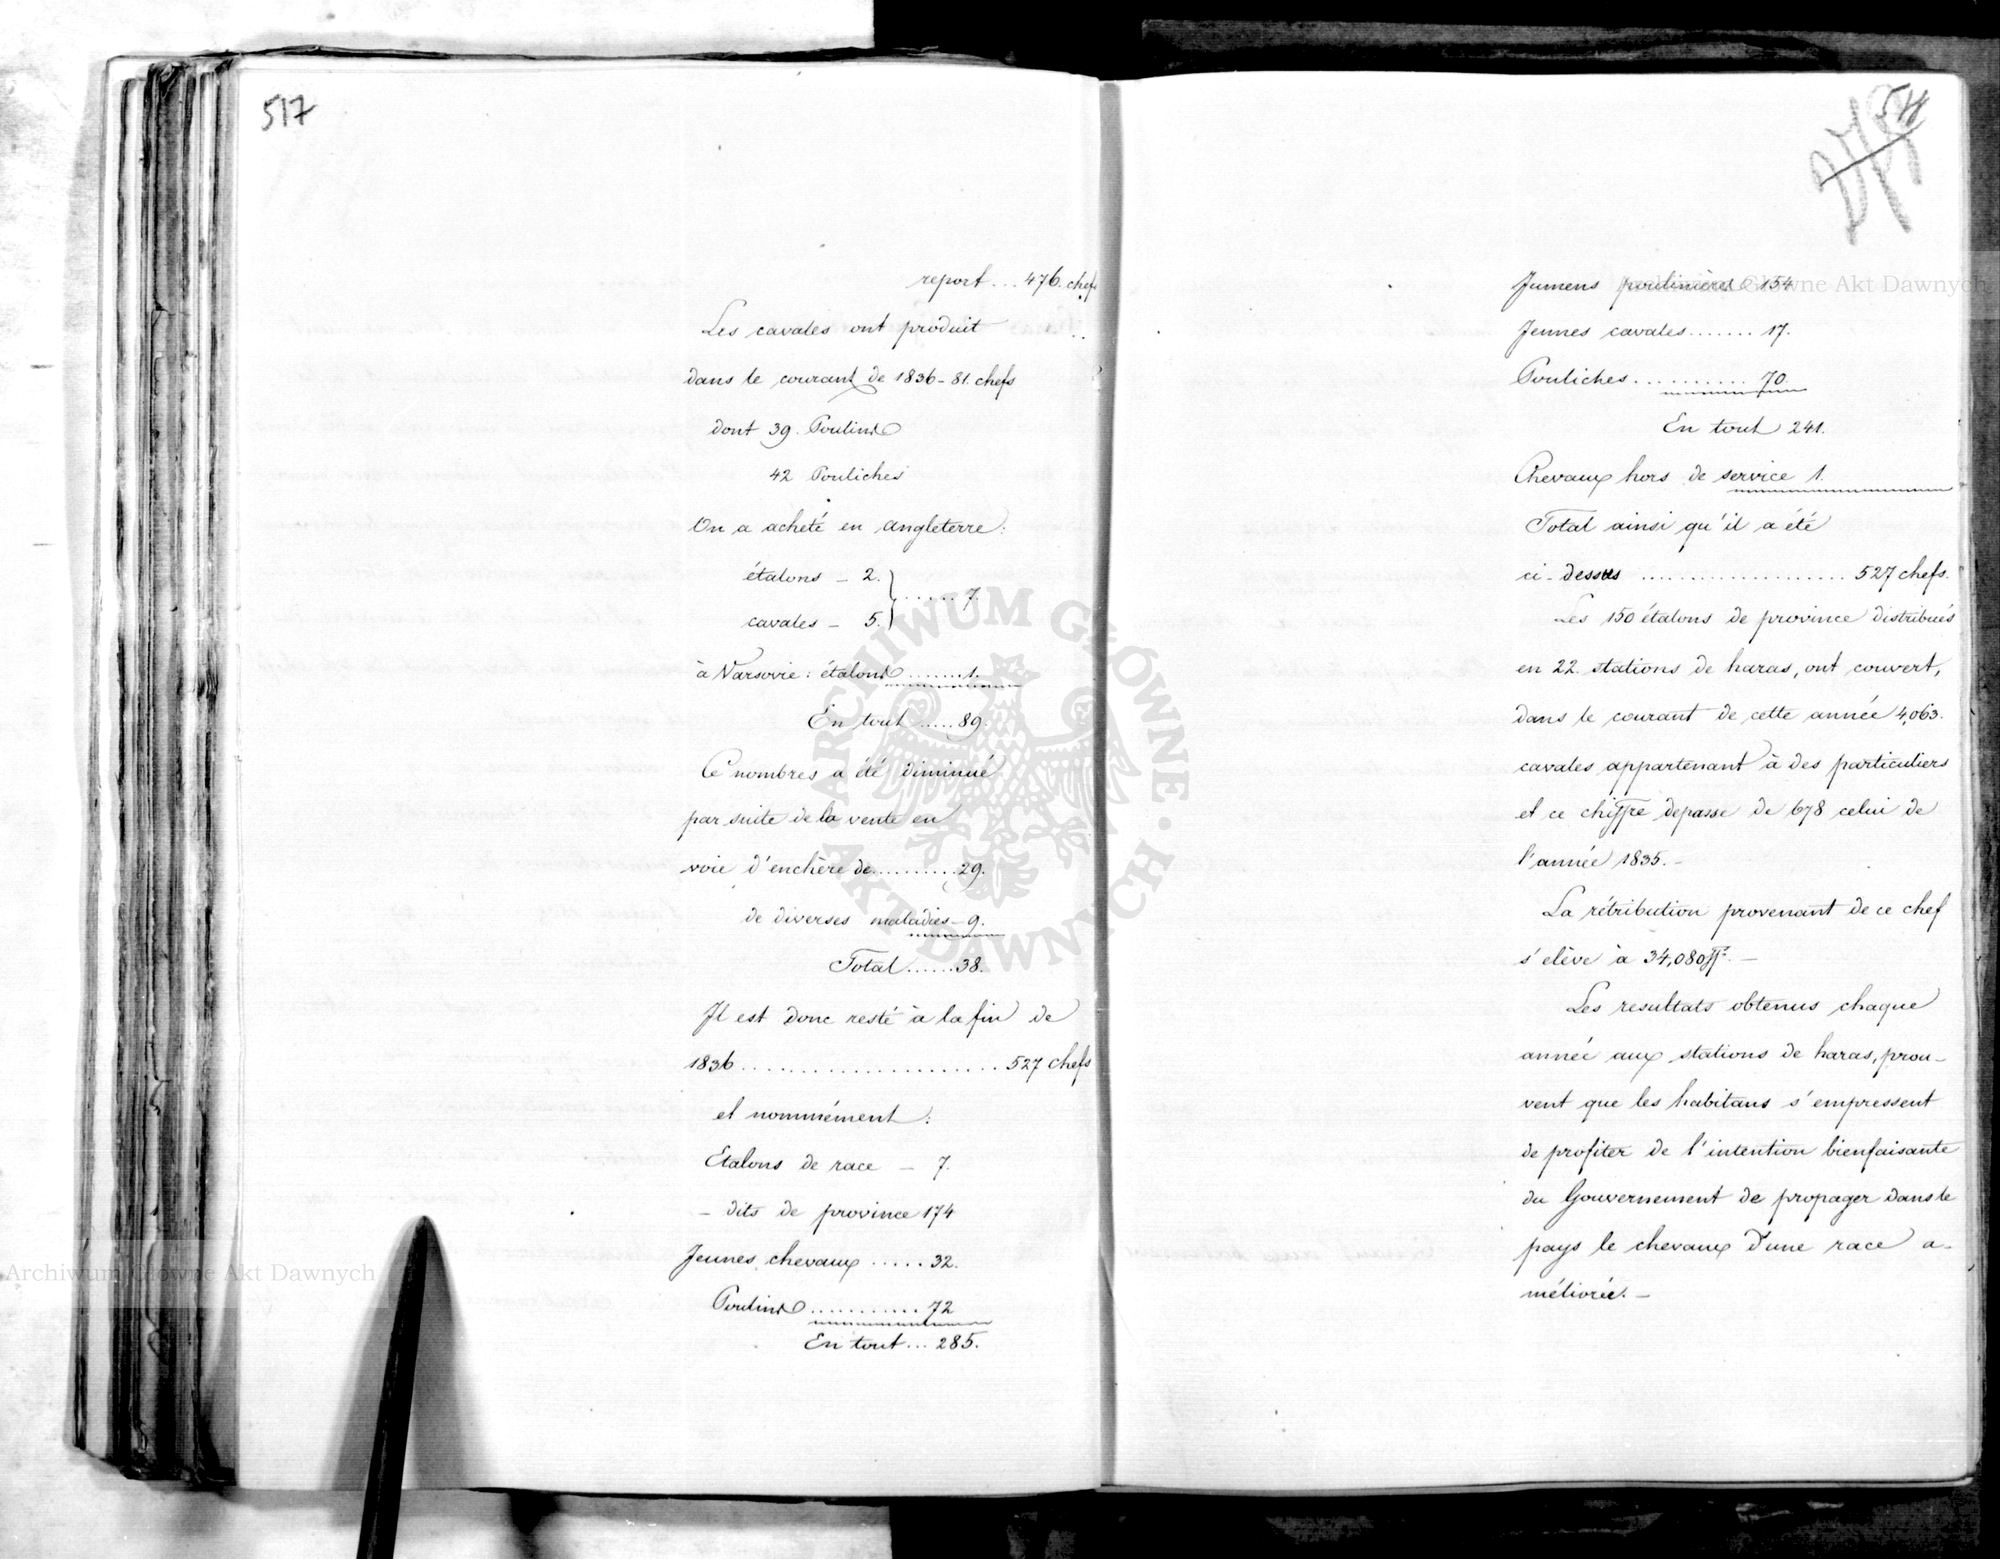 517
report ... 476. chefs
Les cavales ont produit
dans le courant de 1836 - 81. chefs
dont 39. Poulins
42 Pouliches
On a acheté en Angleterre:
étalons - 2.
..... 7.
cavales - 5.
à Varsovie: étalons ....... 1.
En tout ..... 89.
Ce nombres a été diminué
par suite de la vente en
voie d'enchère de .......... 29.
de diverses maladies - 9.
Total ...... 38.
Il est donc resté à la fin de
1836 ...................... 527 chefs
et nommément:
Etalons de race - 7.
- dits de province 174
Jeunes chevaux ..... 32.
Poulins ........... 72
En tout ... 285.
Jumens poulinières 154
Jeunes cavales ....... 17.
Pouliches ........... 70
En tout 241.
Chevaux hors de service 1.
Total ainsi qu'il a été
ci-dessus ..................... 527 chefs.
Les 150 étalons de province distribués
en 22 stations de haras, ont couvert,
dans le courant de cette année 4,063.
cavales appartenant à des particuliers
et ce chiffre depasse de 678 celui de
l'année 1835. -
La rétribution provenant de ce chef
s'elève à 34,080 ff. -
Les resultats obtenus chaque
année aux stations de haras, prou-
vent que les habitans s'empressent
de profiter de l'intention bienfaisante
du Gouvernement de propager dans le
pays le chevaux d'une race a-
méliorée. -
Archiwum Główne Akt Dawnych
Archiwum Główne Akt Dawnych
ARCHIWUM GŁÓWNE AKT DAWNYCH